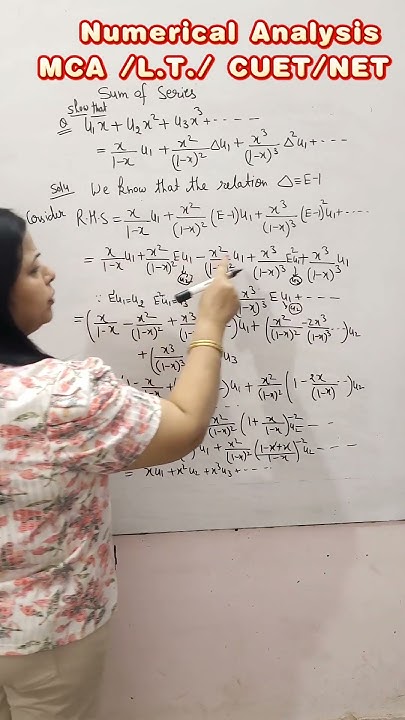 Numerical Analysis
MCA /L.T./ CUET/NET
Sum of Series
Show that
Q u₁x + u₂x² + u₃x³ + - - - -
= x/(1-x) u₁ + x²/(1-x)² Δu₁ + x³/(1-x)³ Δ²u₁ + - - - -
Solu We know that the relation Δ ≡ E-1
Consider R.H.S = x/(1-x) u₁ + x²/(1-x)² (E-1)u₁ + x³/(1-x)³ (E-1)²u₁ + - - - -
= x/(1-x) u₁ + x²/(1-x)² Eu₁ - x²/(1-x)² u₁ + x³/(1-x)³ E²u₁ + x³/(1-x)³ u₁
u₂ u₃
∵ E'u₁ = u₂ E²u₁ = x³/(1-x)³ E u₁ + - - - -
u₂
= (x/(1-x) - x²/(1-x)² + x³ )u₁ + (x²/(1-x)² - 2x³/(1-x)³ - -)u₂
+ (x³/(1-x)³ u₃
1 - x/(1-x) + )u₁ + x²/(1-x)² (1 - 2x/(1-x) - -)u₂
x²/(1-x)² (1 + x/(1-x))⁻² u₂ - - -
)u₁ + x²/(1-x)² ((1-x+x)/(1-x))⁻² u₂ - - - -
= xu₁ + x²u₂ + x³u₃ + - - - -